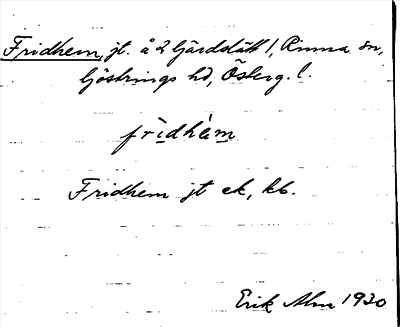 Fridhem, jt. å 2 Gärdslätt 1, Rinna sn,
Göstrings hd, Österg. l.
frìdhèm
Fridhem jt ek, kb.
Erik Alm 1930